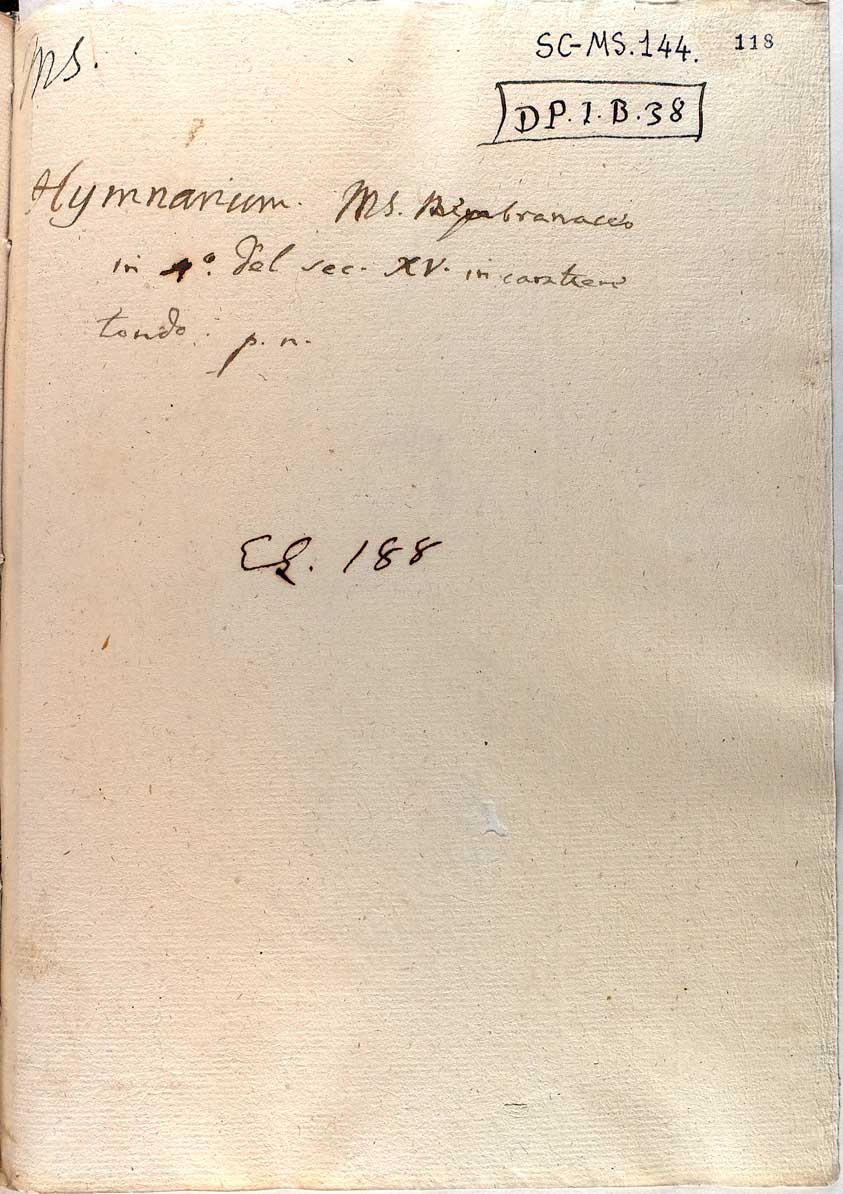 MS.
SC-MS.144.
118
DP.1.B.38
Hymnarium. MS. Membranaceo
in 4º. del sec. XV. in carattere
tondo. p. n.
188